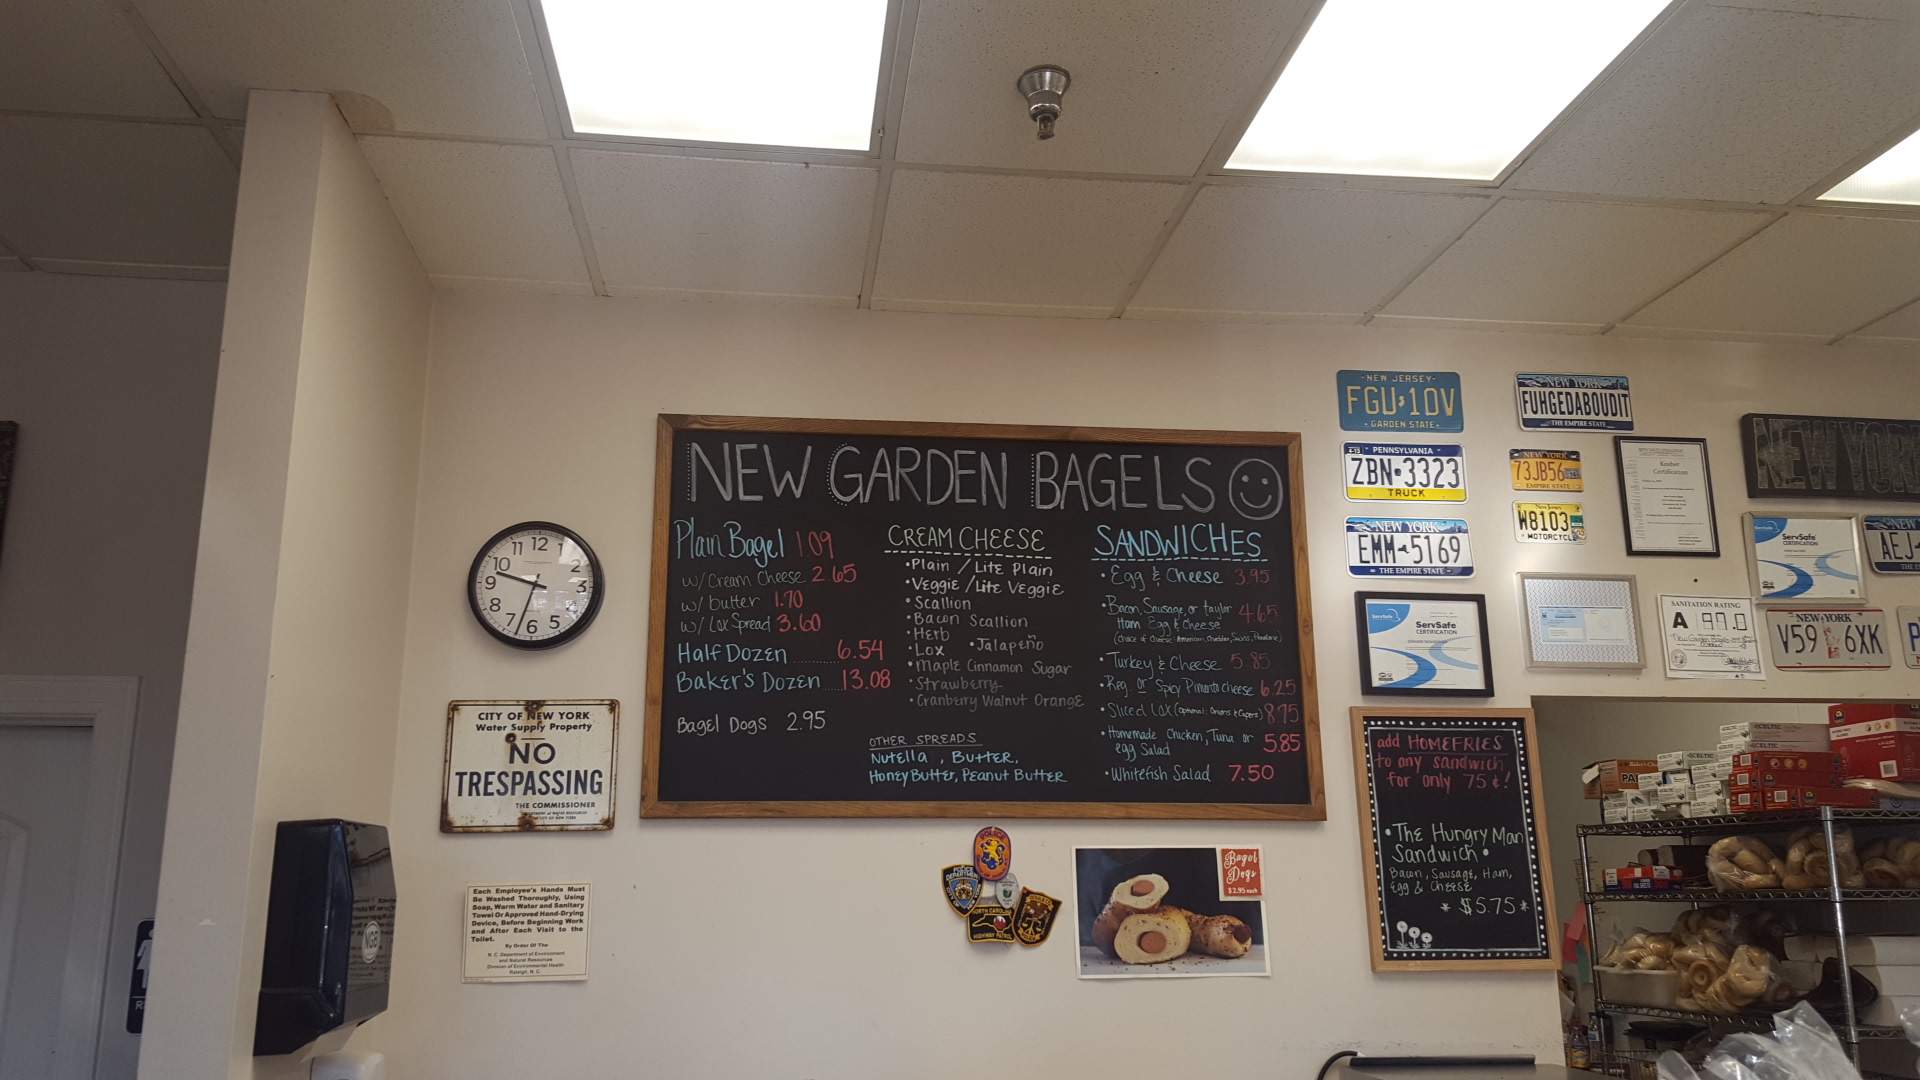 NEW GARDEN BAGELS
Plain Bagel 1.09
w/ Cream Cheese 2.65
w/ butter 1.70
w/ Lox Spread 3.60
Half Dozen ........ 6.54
Baker's Dozen .... 13.08
Bagel Dogs 2.95
CREAM CHEESE
•Plain / Lite Plain
•Veggie / Lite Veggie
•Scallion
•Bacon Scallion
•Herb
•Lox •Jalapeño
•Maple Cinnamon Sugar
•Strawberry
•Cranberry Walnut Orange
OTHER SPREADS
Nutella, Butter,
Honey Butter, Peanut Butter
SANDWICHES
•Egg & Cheese 3.95
•Bacon, Sausage, or taylor 4.65
Ham Egg & Cheese
•Turkey & Cheese 5.85
•Reg. or Spicy Pimento cheese 6.25
•Sliced Lox (optional: Onions & Capers) 8.75
•Homemade Chicken, Tuna or 5.85
egg Salad
•Whitefish Salad 7.50
11 12 1
10 2
9 3
8
7 6 5
CITY OF NEW YORK
Water Supply Property
NO
TRESPASSING
THE COMMISSIONER
Each Employee's Hands Must
Be Washed Thoroughly, Using
Soap, Warm Water and Sanitary
Towel Or Approved Hand-Drying
Device, Before Beginning Work
and After Each Visit to the
Toilet.
By Order Of The
N. C. Department of Environment
and Natural Resources
Division of Environmental Health
Raleigh, N. C.
POLICE
POLICE
DEPARTMENT
NORTH CAROLINA
HIGHWAY PATROL
Bagel
Dogs
$2.95 each
NEW JERSEY
FGU 10V
GARDEN STATE
PENNSYLVANIA
ZBN 3323
TRUCK
NEW YORK
EMM 5169
THE EMPIRE STATE
ServSafe
ServSafe
CERTIFICATION
NEW YORK
FUHGEDABOUDIT
THE EMPIRE STATE
NEW YORK
73JB56
EMPIRE STATE
New Jersey
W8103
MOTORCYCLE
Kosher
Certification
NEW YORK
ServSafe
ServSafe
CERTIFICATION
NEW
AEJ
SANITATION RATING
A 97.0
New Garden Bagels
NEW YORK
V59 6XK
add HOMEFRIES
to any sandwich
for only 75¢!
•The Hungry Man
Sandwich•
Bacon, Sausage, Ham,
Egg & Cheese
* $5.75 *
CELTIC
CELTIC
CELTIC